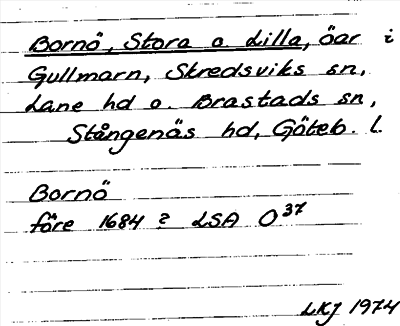 Bornö, Stora o. Lilla, öar i
Gullmarn, Skredsviks sn,
Lane hd o. Brastads sn,
Stångenäs hd, Göteb. l.
Bornö
före 1684 ? LSA O37
LKJ 1974